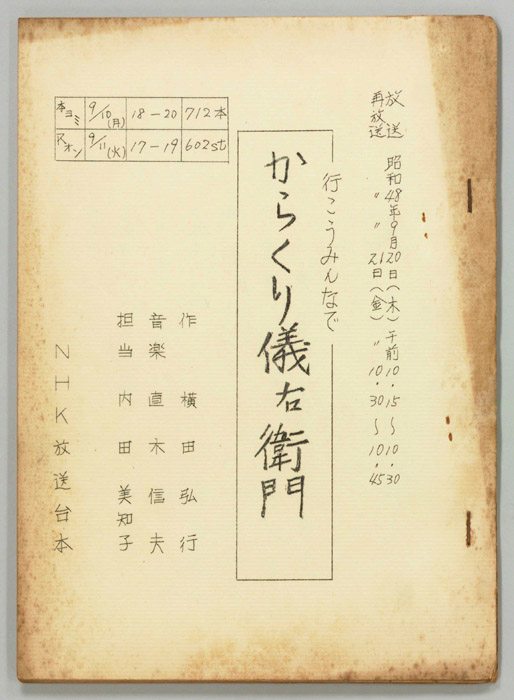 放送 昭和48年9月20日(木)午前10・15〜10・30
再放送 〃 〃 21日(金)〃 10・30〜10・45
行こうみんなで
からくり儀右衛門
本ヨミ 9/10(月) 18-20 712本
ロクオン 9/11(火) 17-19 602st
作 横田弘行
音楽 直木信夫
担当 内田美知子
NHK放送台本